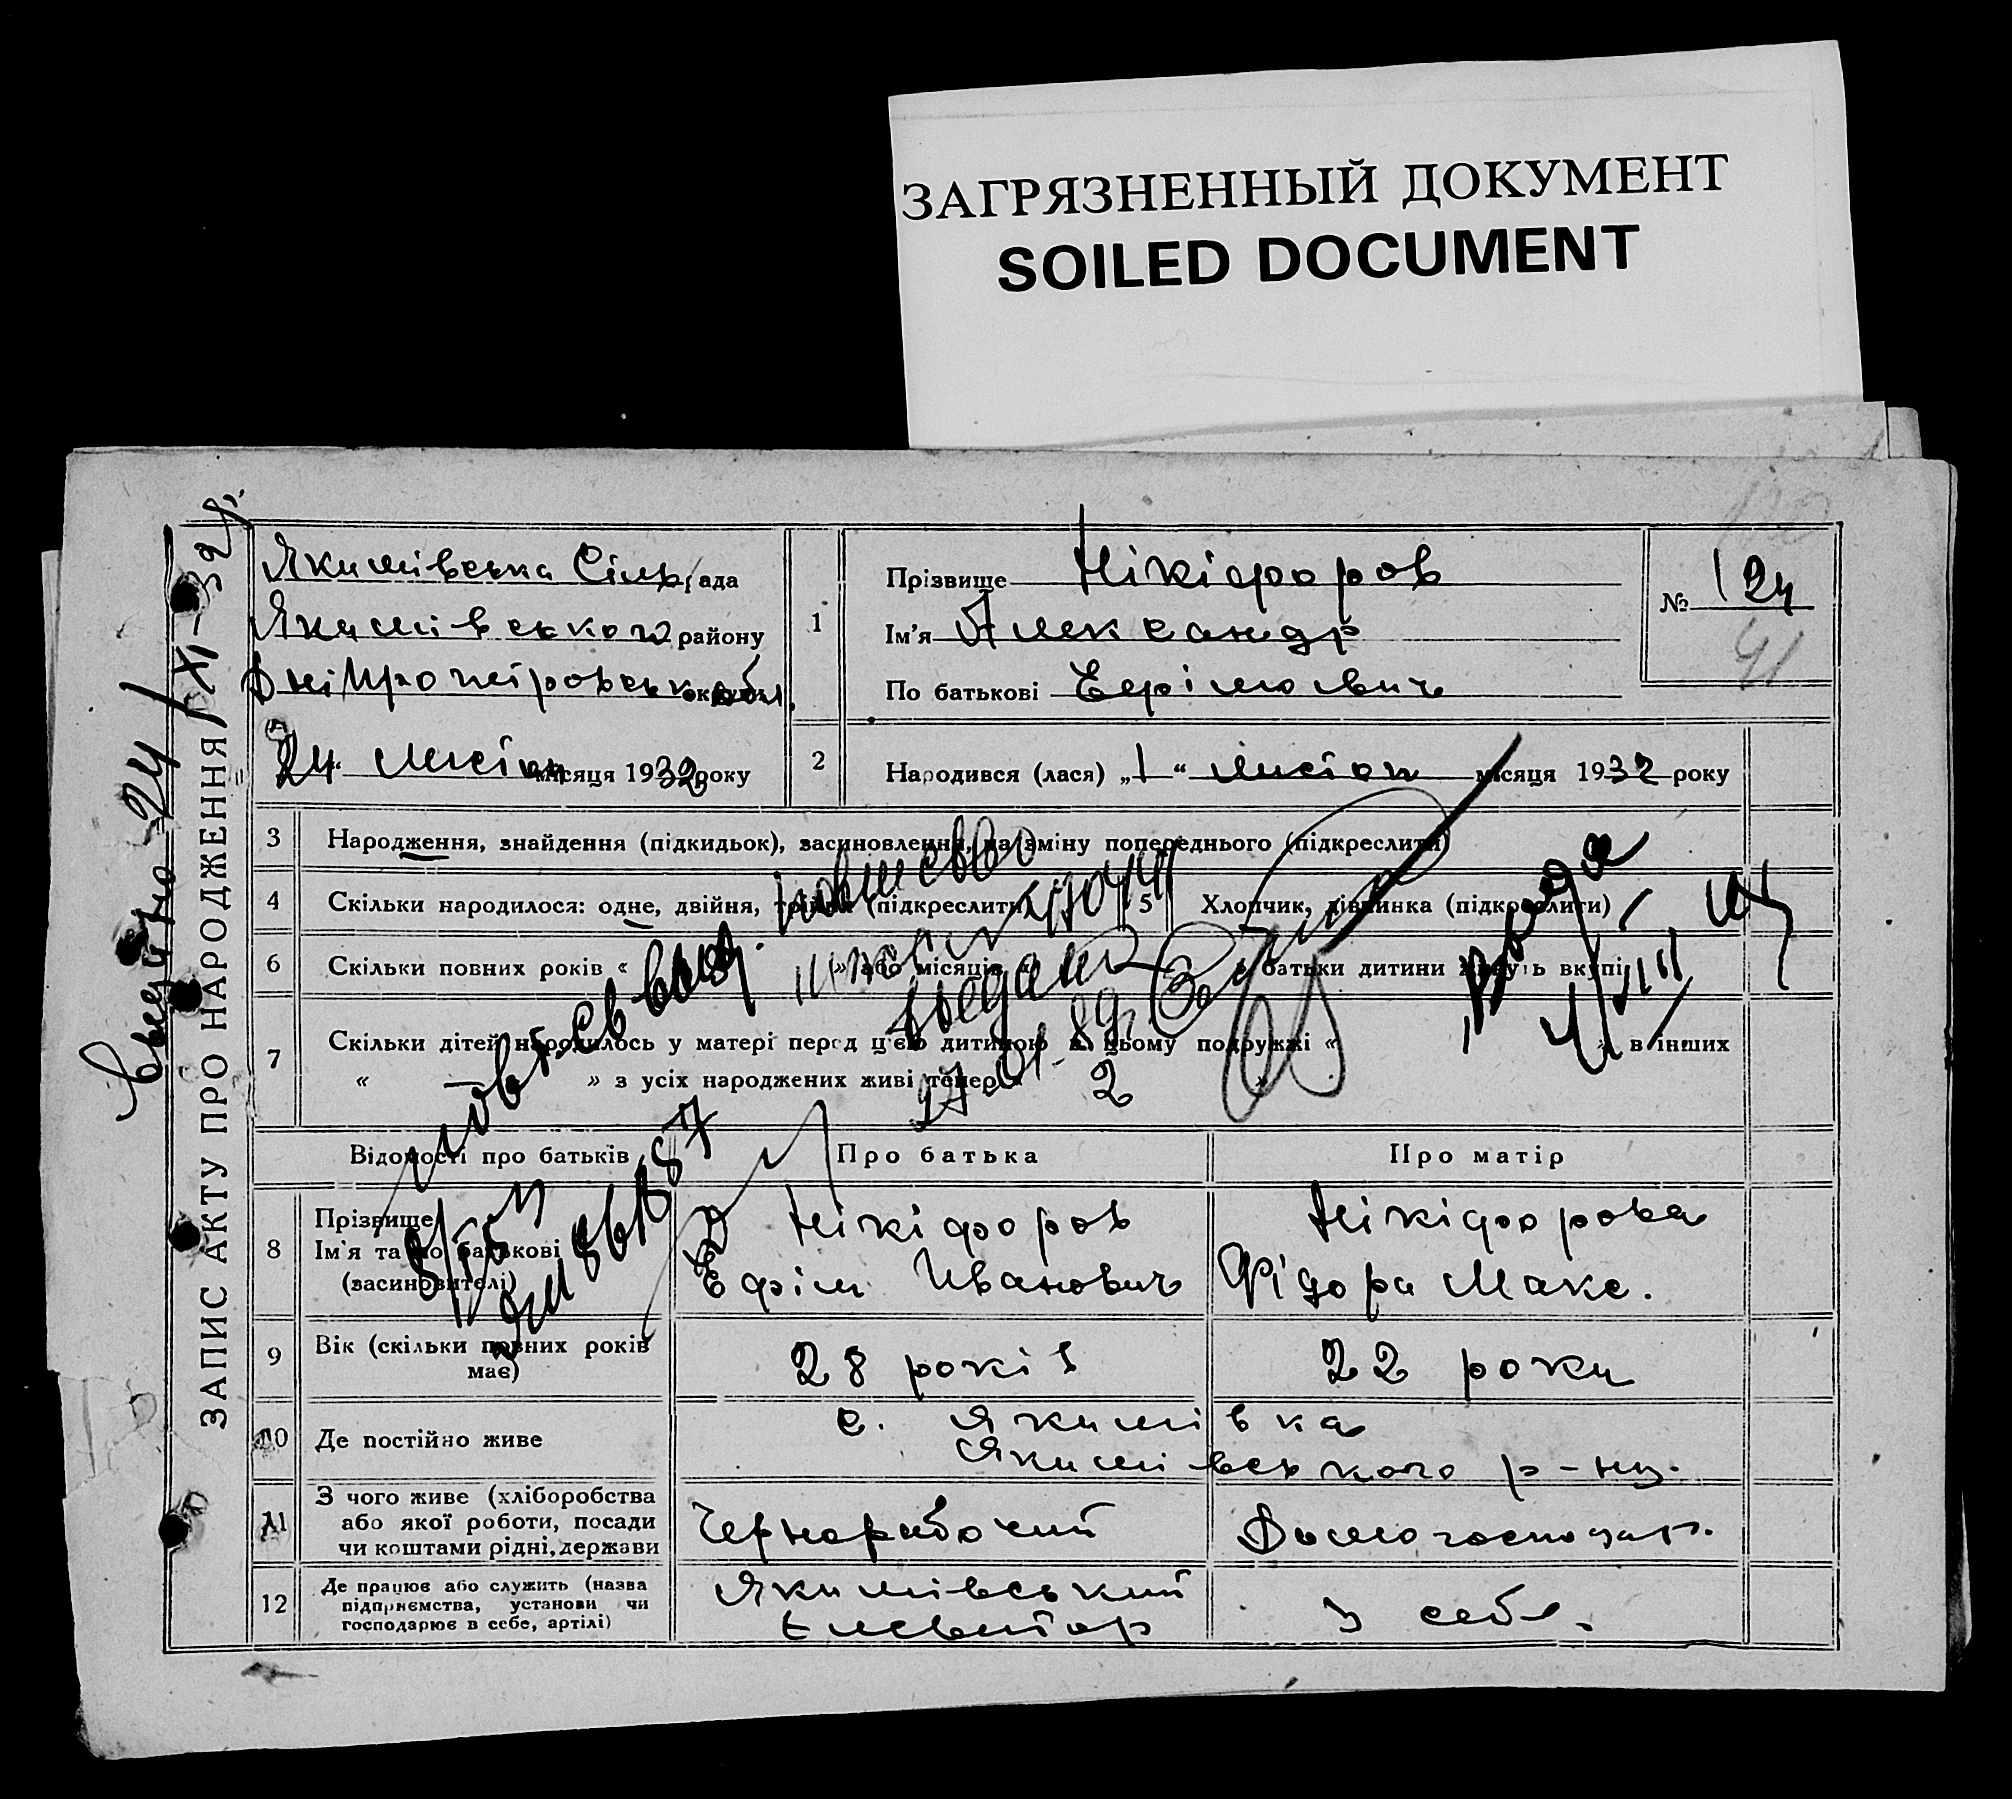 ЗАГРЯЗНЕННЫЙ ДОКУМЕНТ
SOILED DOCUMENT
ЗАПИС АКТУ ПРО НАРОДЖЕННЯ
Якимівська Сільрада
Якимівського району
Дніпропетровськ обл.
24 " листоп місяця 1932 року
1
Прізвище Нікіфоров
Ім'я Александр
По батькові Ефімович
№ 124
41
2
Народився (лася) „1“ листоп місяця 1932 року
3 Народження, знайдення (підкидьок), засиновлення, на зміну попереднього (підкреслити)
4 Скільки народилося: одне, двійня, трійня (підкреслити)
5 Хлопчик, дівчинка (підкреслити)
6 Скільки повних років « » або місяців « батьки дитини живуть вкупі
7 Скільки дітей народилось у матері перед цією дитиною в цьому подружжі « » в інших
« — » з усіх народжених живі тепер « 2 »
Відомості про батьків
Про батька
Про матір
8 Прізвище
Ім'я та по батькові
(засиновителі)
Нікіфоров
Ефім Иванович
Нікіфорова
Фідора Макс.
9 Вік (скільки повних років
має)
28 років
22 роки
10 Де постійно живе
с. Якимівка
Якимівського р-ну.
11 З чого живе (хліборобства
або якої роботи, посади
чи коштами рідні, держави
Чернорабочий
Домогосподар.
12 Де працює або служить (назва
підприємства, установи чи
господарює в себе, артілі)
Якимівський
Елеватор
У себе.